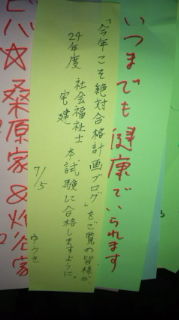 いつまでも健康でいられます
「今年こそ絶対合格計画ブログ」をご覧の皆様が
24年度 社会福祉士
宅建 本試験に合格しますように。
7/5
ビバ☆桑原家&
家